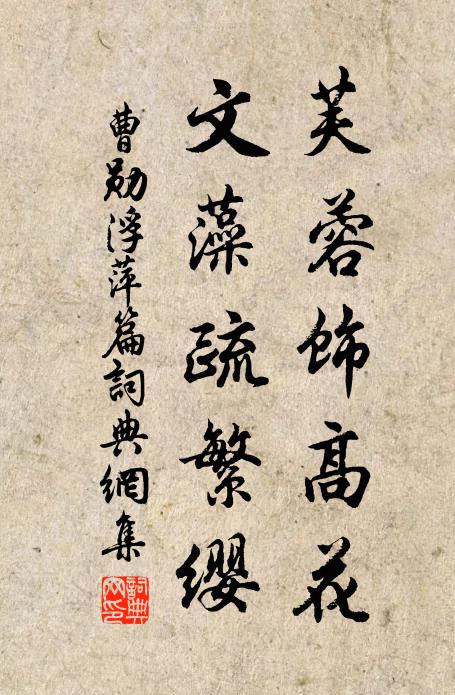 芙蓉饰高花
文藻疏繁缨
曹勋浮萍篇詞典網集
詞典网印